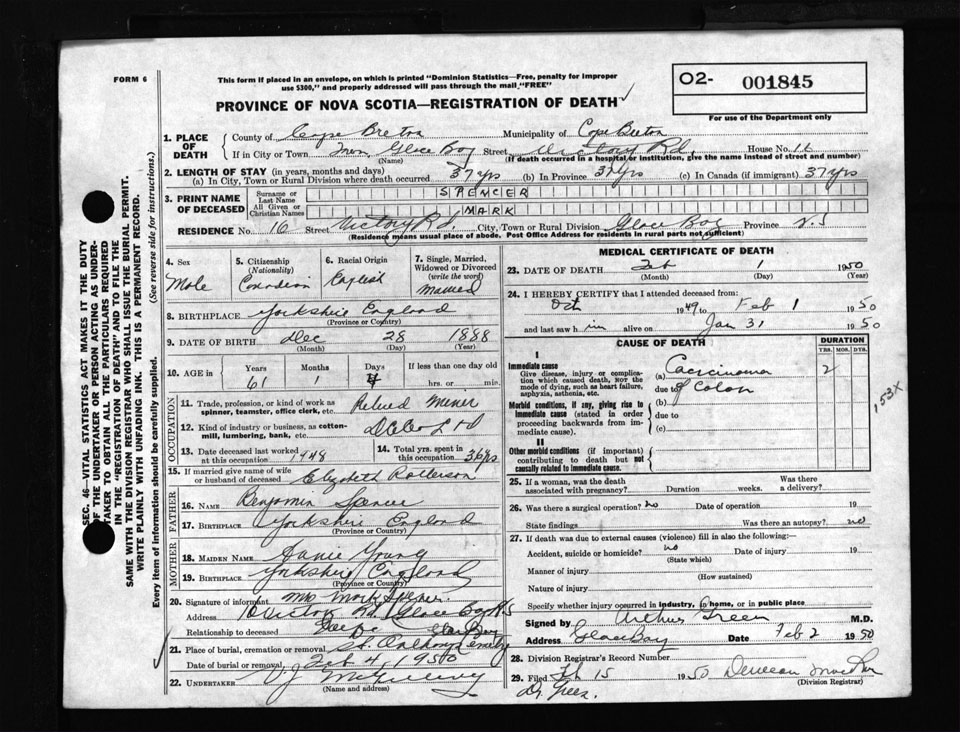 FORM 6
This form if placed in an envelope, on which is printed "Dominion Statistics—Free, penalty for improper
use $300," and properly addressed will pass through the mail "FREE"
O2- 001845
For use of the Department only
PROVINCE OF NOVA SCOTIA—REGISTRATION OF DEATH ✓
SEC. 46—VITAL STATISTICS ACT MAKES IT THE DUTY
OF THE UNDERTAKER OR PERSON ACTING AS UNDER-
TAKER TO OBTAIN ALL THE PARTICULARS REQUIRED
IN THE "REGISTRATION OF DEATH" AND TO FILE THE
SAME WITH THE DIVISION REGISTRAR WHO SHALL ISSUE THE BURIAL PERMIT.
WRITE PLAINLY WITH UNFADING INK. THIS IS A PERMANENT RECORD.
Every item of information should be carefully supplied. (See reverse side for instructions.)
1. PLACE OF DEATH
County of Cape Breton Municipality of Cape Breton
If in City or Town Town Glace Bay Street Victory Rd. House No. 16
(Name) (If death occurred in a hospital or institution, give the name instead of street and number)
2. LENGTH OF STAY (in years, months and days)
(a) In City, Town or Rural Division where death occurred 37 yrs (b) In Province 37 yrs (c) In Canada (if immigrant) 37 yrs
3. PRINT NAME OF DECEASED
Surname or Last Name SPENCER
All Given or Christian Names MARK
RESIDENCE No. 16 Street Victory Rd City, Town or Rural Division Glace Bay Province N.S
(Residence means usual place of abode. Post Office Address for residents in rural parts not sufficient)
4. Sex Male
5. Citizenship (Nationality) Canadian
6. Racial Origin English
7. Single, Married, Widowed or Divorced (write the word) Married
8. BIRTHPLACE Yorkshire England
(Province or Country)
9. DATE OF BIRTH Dec 28 1888
(Month) (Day) (Year)
10. AGE in Years 61 Months 1 Days 4 If less than one day old hrs. or min.
OCCUPATION
11. Trade, profession, or kind of work as
spinner, teamster, office clerk, etc. Retired Miner
12. Kind of industry or business, as cotton-
mill, lumbering, bank, etc.
13. Date deceased last worked
at this occupation 1948
14. Total yrs. spent in
this occupation 36 yrs
15. If married give name of wife
or husband of deceased Elizabeth
FATHER
16. NAME Benjamin Spencer
17. BIRTHPLACE Yorkshire England
(Province or Country)
MOTHER
18. MAIDEN NAME Young
19. BIRTHPLACE Yorkshire England
(Province or Country)
20. Signature of informant Mrs Mark Spencer
Address Victory Rd. Glace Bay N S
Relationship to deceased
21. Place of burial, cremation or removal St. Anthony Cemetery
Date of burial or removal Feb 4, 1950
22. UNDERTAKER V.J. McGillivray
(Name and address)
MEDICAL CERTIFICATE OF DEATH
23. DATE OF DEATH Feb 1 1950
(Month) (Day) (Year)
24. I HEREBY CERTIFY that I attended deceased from:
Oct 1949 to Feb 1 1950
and last saw him alive on Jan 31 1950
CAUSE OF DEATH
DURATION
YRS. MOS. DYS.
I
Immediate cause
Give disease, injury or complica-
tion which caused death, NOT the
mode of dying, such as heart failure,
asphyxia, asthenia, etc.
(a) Carcinoma 2
due to of Colon
153X
Morbid conditions, if any, giving rise to
immediate cause (stated in order
proceeding backwards from im-
mediate cause).
(b)
due to
(c)
II
Other morbid conditions (if important)
contributing to death but not
causally related to immediate cause.
25. If a woman, was the death
associated with pregnancy? Duration weeks. Was there
a delivery?
26. Was there a surgical operation? no Date of operation 19
State findings Was there an autopsy? no
27. If death was due to external causes (violence) fill in also the following:
Accident, suicide or homicide? no Date of injury 19
(State which)
Manner of injury
(How sustained)
Nature of injury
Specify whether injury occurred in industry, in home, or in public place
Signed by Arthur Green M.D.
Address Glace Bay Date Feb 2 1950
28. Division Registrar's Record Number
29. Filed Feb 15 1950 Duncan
(Division Registrar)
Dr. Green.